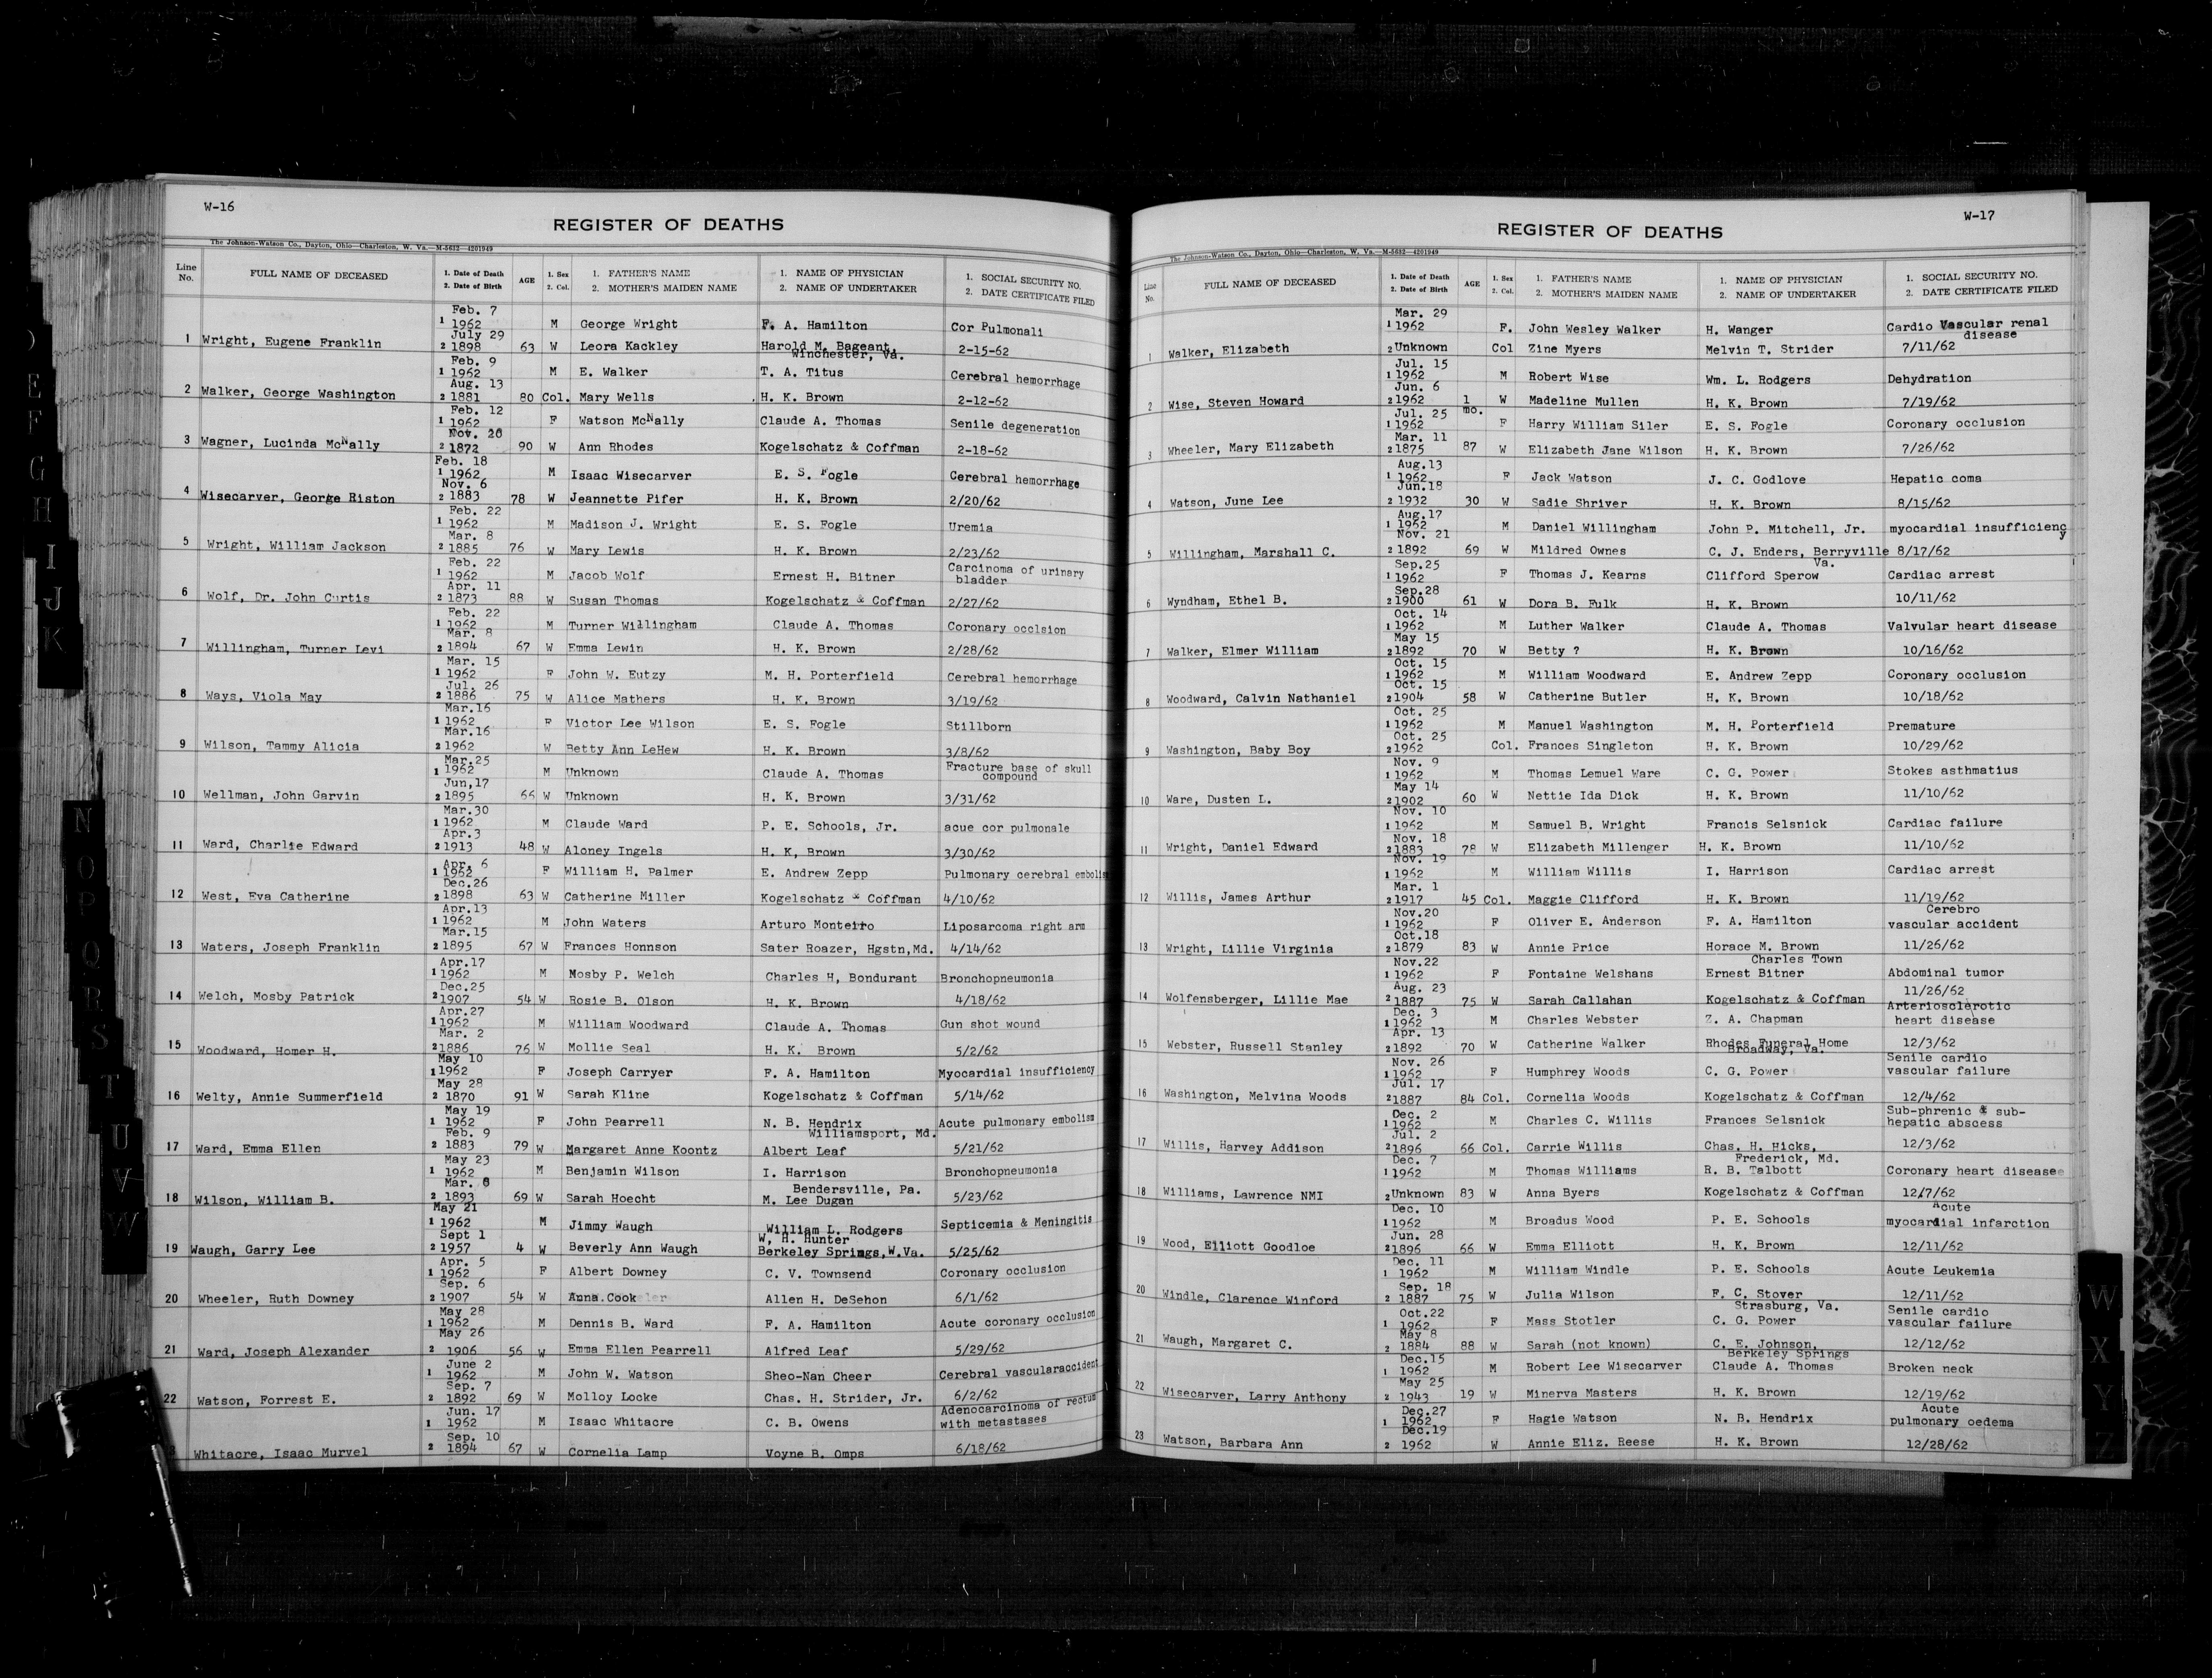 W-16
REGISTER OF DEATHS
The Johnson-Watson Co., Dayton, Ohio—Charleston, W. Va.—M-5632—4201949
Line No. FULL NAME OF DECEASED 1. Date of Death 2. Date of Birth AGE 1. Sex 2. Col. 1. FATHER'S NAME 2. MOTHER'S MAIDEN NAME 1. NAME OF PHYSICIAN 2. NAME OF UNDERTAKER 1. SOCIAL SECURITY NO. 2. DATE CERTIFICATE FILED
Feb. 7
1 1962 M George Wright F. A. Hamilton Cor Pulmonali
July 29
1 Wright, Eugene Franklin 2 1898 63 W Leora Kackley Harold M. Bageant, Winchester, Va. 2-15-62
Feb. 9
1 1962 M E. Walker T. A. Titus Cerebral hemorrhage
Aug. 13
2 Walker, George Washington 2 1881 80 Col. Mary Wells H. K. Brown 2-12-62
Feb. 12
1 1962 F Watson McNally Claude A. Thomas Senile degeneration
Nov. 20
3 Wagner, Lucinda McNally 2 1872 90 W Ann Rhodes Kogelschatz & Coffman 2-18-62
Feb. 18
1 1962 M Isaac Wisecarver E. S. Fogle Cerebral hemorrhage
Nov. 6
4 Wisecarver, George Riston 2 1883 78 W Jeannette Pifer H. K. Brown 2/20/62
Feb. 22
1 1962 M Madison J. Wright E. S. Fogle Uremia
Mar. 8
5 Wright, William Jackson 2 1885 76 W Mary Lewis H. K. Brown 2/23/62
Feb. 22
1 1962 M Jacob Wolf Ernest H. Bitner Carcinoma of urinary bladder
Apr. 11
6 Wolf, Dr. John Curtis 2 1873 88 W Susan Thomas Kogelschatz & Coffman 2/27/62
Feb. 22
1 1962 M Turner Willingham Claude A. Thomas Coronary occlsion
Mar. 8
7 Willingham, Turner Levi 2 1894 67 W Emma Lewin H. K. Brown 2/28/62
Mar. 15
1 1962 F John W. Eutzy M. H. Porterfield Cerebral hemorrhage
Jul. 26
8 Ways, Viola May 2 1886 75 W Alice Mathers H. K. Brown 3/19/62
Mar.16
1 1962 F Victor Lee Wilson E. S. Fogle Stillborn
Mar.16
9 Wilson, Tammy Alicia 2 1962 W Betty Ann LeHew H. K. Brown 3/8/62
Mar.25
1 1962 M Unknown Claude A. Thomas Fracture base of skull compound
Jun,17
10 Wellman, John Garvin 2 1895 66 W Unknown H. K. Brown 3/31/62
Mar.30
1 1962 M Claude Ward P. E. Schools, Jr. acue cor pulmonale
Apr.3
11 Ward, Charlie Edward 2 1913 48 W Aloney Ingels H. K, Brown 3/30/62
Apr. 6
1 1962 F William H. Palmer E. Andrew Zepp Pulmonary cerebral embolis
Dec.26
12 West, Eva Catherine 2 1898 63 W Catherine Miller Kogelschatz * Coffman 4/10/62
Apr.13
1 1962 M John Waters Arturo Monteiro Liposarcoma right arm
Mar.15
13 Waters, Joseph Franklin 2 1895 67 W Frances Honnson Sater Roazer, Hgstn,Md. 4/14/62
Apr.17
1 1962 M Mosby P. Welch Charles H, Bondurant Bronchopneumonia
Dec.25
14 Welch, Mosby Patrick 2 1907 54 W Rosie B. Olson H. K. Brown 4/18/62
Apr.27
1 1962 M William Woodward Claude A. Thomas Gun shot wound
Mar. 2
15 Woodward, Homer H. 2 1886 76 W Mollie Seal H. K. Brown 5/2/62
May 10
1 1962 F Joseph Carryer F. A. Hamilton Myocardial insufficiency
May 28
16 Welty, Annie Summerfield 2 1870 91 W Sarah Kline Kogelschatz & Coffman 5/14/62
May 19
1 1962 F John Pearrell N. B. Hendrix Acute pulmonary embolism
Feb. 9 Williamsport, Md.
17 Ward, Emma Ellen 2 1883 79 W Margaret Anne Koontz Albert Leaf 5/21/62
May 23
1 1962 M Benjamin Wilson I. Harrison Bronchopneumonia
Mar. 8 Bendersville, Pa.
18 Wilson, William B. 2 1893 69 W Sarah Hoecht M. Lee Dugan 5/23/62
May 21
1 1962 M Jimmy Waugh William L. Rodgers Septicemia & Meningitis
Sept 1 W, H. Hunter
19 Waugh, Garry Lee 2 1957 4 W Beverly Ann Waugh Berkeley Springs,W.Va. 5/25/62
Apr. 5
1 1962 F Albert Downey C. V. Townsend Coronary occlusion
Sep. 6
20 Wheeler, Ruth Downey 2 1907 54 W Anna Cook Allen H. DeSehon 6/1/62
May 28
1 1962 M Dennis B. Ward F. A. Hamilton Acute coronary occlusion
May 26
21 Ward, Joseph Alexander 2 1906 56 W Emma Ellen Pearrell Alfred Leaf 5/29/62
June 2
1 1962 M John W. Watson Sheo-Nan Cheer Cerebral vascularaccident
Sep. 7
22 Watson, Forrest E. 2 1892 69 W Molloy Locke Chas. H. Strider, Jr. 6/2/62
Jun. 17
1 1962 M Isaac Whitacre C. B. Owens Adenocarcinoma of rectus with metastases
Sep. 10
Whitacre, Isaac Murvel 2 1894 67 W Cornelia Lamp Voyne B. Omps 6/18/62
W-17
REGISTER OF DEATHS
The Johnson-Watson Co., Dayton, Ohio—Charleston, W. Va.—M-5632—4201949
Line No. FULL NAME OF DECEASED 1. Date of Death 2. Date of Birth AGE 1. Sex 2. Col. 1. FATHER'S NAME 2. MOTHER'S MAIDEN NAME 1. NAME OF PHYSICIAN 2. NAME OF UNDERTAKER 1. SOCIAL SECURITY NO. 2. DATE CERTIFICATE FILED
Mar. 29
1 1962 F. John Wesley Walker H. Wanger Cardio Vascular renal disease
1 Walker, Elizabeth 2 Unknown Col Zine Myers Melvin T. Strider 7/11/62
Jul. 15
1 1962 M Robert Wise Wm. L. Rodgers Dehydration
Jun. 6
2 Wise, Steven Howard 2 1962 1 mo. W Madeline Mullen H. K. Brown 7/19/62
Jul. 25
1 1962 F Harry William Siler E. S. Fogle Coronary occlusion
Mar. 11
3 Wheeler, Mary Elizabeth 2 1875 87 W Elizabeth Jane Wilson H. K. Brown 7/26/62
Aug.13
1 1962 F Jack Watson J. C. Godlove Hepatic coma
Jun.18
4 Watson, June Lee 2 1932 30 W Sadie Shriver H. K. Brown 8/15/62
Aug.17
1 1962 M Daniel Willingham John P. Mitchell, Jr. myocardial insufficiency
Nov. 21
5 Willingham, Marshall C. 2 1892 69 W Mildred Ownes C. J. Enders, Berryville Va. 8/17/62
Sep.25
1 1962 F Thomas J. Kearns Clifford Sperow Cardiac arrest
Sep.28
6 Wyndham, Ethel B. 2 1900 61 W Dora B. Fulk H. K. Brown 10/11/62
Oct. 14
1 1962 M Luther Walker Claude A. Thomas Valvular heart disease
May 15
7 Walker, Elmer William 2 1892 70 W Betty ? H. K. Brown 10/16/62
Oct. 15
1 1962 M William Woodward E. Andrew Zepp Coronary occlusion
Oct. 15
8 Woodward, Calvin Nathaniel 2 1904 58 W Catherine Butler H. K. Brown 10/18/62
Oct. 25
1 1962 M Manuel Washington M. H. Porterfield Premature
Oct. 25
9 Washington, Baby Boy 2 1962 Col. Frances Singleton H. K. Brown 10/29/62
Nov. 9
1 1962 M Thomas Lemuel Ware C. G. Power Stokes asthmatius
May 14
10 Ware, Dusten L. 2 1902 60 W Nettie Ida Dick H. K. Brown 11/10/62
Nov. 10
1 1962 M Samuel B. Wright Francis Selsnick Cardiac failure
Nov. 18
11 Wright, Daniel Edward 2 1883 78 W Elizabeth Millenger H. K. Brown 11/10/62
Nov. 19
1 1962 M William Willis I. Harrison Cardiac arrest
Mar. 1
12 Willis, James Arthur 2 1917 45 Col. Maggie Clifford H. K. Brown 11/19/62
Nov.20 Cerebro
1 1962 F Oliver E. Anderson F. A. Hamilton vascular accident
Oct.18
13 Wright, Lillie Virginia 2 1879 83 W Annie Price Horace M. Brown 11/26/62
Nov.22 Charles Town
1 1962 F Fontaine Welshans Ernest Bitner Abdominal tumor
Aug. 23
14 Wolfensberger, Lillie Mae 2 1887 75 W Sarah Callahan Kogelschatz & Coffman 11/26/62
Dec. 3 Arteriosclerotic
1 1962 M Charles Webster Z. A. Chapman heart disease
Apr. 13
15 Webster, Russell Stanley 2 1892 70 W Catherine Walker Rhodes Funeral Home Broadway, Va. 12/3/62
Nov. 26 Senile cardio
1 1962 F Humphrey Woods C. G. Power vascular failure
Jul. 17
16 Washington, Melvina Woods 2 1887 84 Col. Cornelia Woods Kogelschatz & Coffman 12/4/62
Dec. 2 Sub-phrenic & sub-
1 1962 M Charles C. Willis Frances Selsnick hepatic abscess
Jul. 2
17 Willis, Harvey Addison 2 1896 66 Col. Carrie Willis Chas. H. Hicks, 12/3/62
Dec. 7 Frederick, Md.
1 1962 M Thomas Williams R. B. Talbott Coronary heart disease
18 Williams, Lawrence NMI 2 Unknown 83 W Anna Byers Kogelschatz & Coffman 12/7/62
Dec. 10 Acute
1 1962 M Broadus Wood P. E. Schools myocardial infarction
Jun. 28
19 Wood, Elliott Goodloe 2 1896 66 W Emma Elliott H. K. Brown 12/11/62
Dec. 11
1 1962 M William Windle P. E. Schools Acute Leukemia
Sep. 18
20 Windle, Clarence Winford 2 1887 75 W Julia Wilson F. C. Stover 12/11/62
Oct.22 Strasburg, Va. Senile cardio
1 1962 F Mass Stotler C. G. Power vascular failure
May 8
21 Waugh, Margaret C. 2 1884 88 W Sarah (not known) C. E. Johnson, Berkeley Springs 12/12/62
Dec.15
1 1962 M Robert Lee Wisecarver Claude A. Thomas Broken neck
May 25
22 Wisecarver, Larry Anthony 2 1943 19 W Minerva Masters H. K. Brown 12/19/62
Dec.27 Acute
1 1962 F Hagie Watson N. B. Hendrix pulmonary oedema
Dec.19
23 Watson, Barbara Ann 2 1962 W Annie Eliz. Reese H. K. Brown 12/28/62
E
F
G
H
I
J
K
N
O
P
Q
R
S
T
U
V
W
W
X
Y
Z